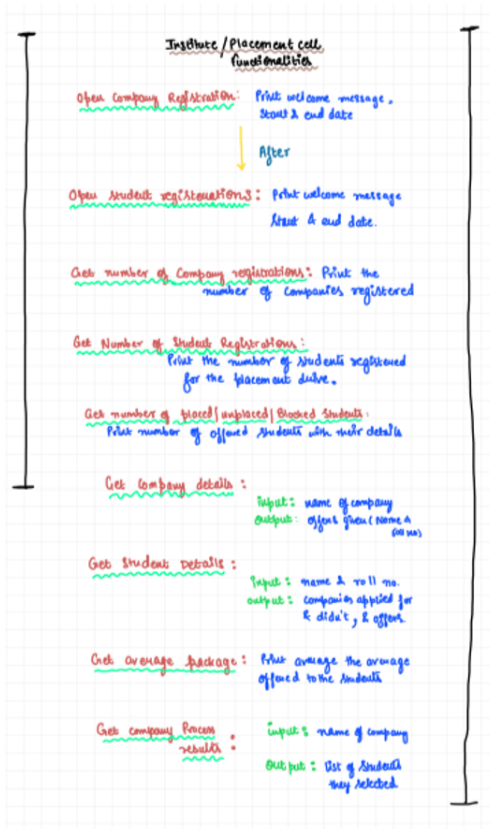 Institute / Placement cell
functionalities
Open Company Registration: Print welcome message,
Start & end date
After
Open student registrations: Print welcome message
Start & end date.
Get number of Company registrations: Print the
number of companies registered
Get Number of Student Registrations:
Print the number of students registered
for the placement drive.
Get number of placed/unplaced/Blocked Students:
Print number of offered students with their details
Get company details:
input: name of company
output: offers given (Name &
roll no)
Get Student Details:
input: name & roll no.
output: companies applied for
& didn't, & offers
Get average package: Print average the average
offered to the students
Get company Process
results:
input: name of company
Output: list of students
they selected